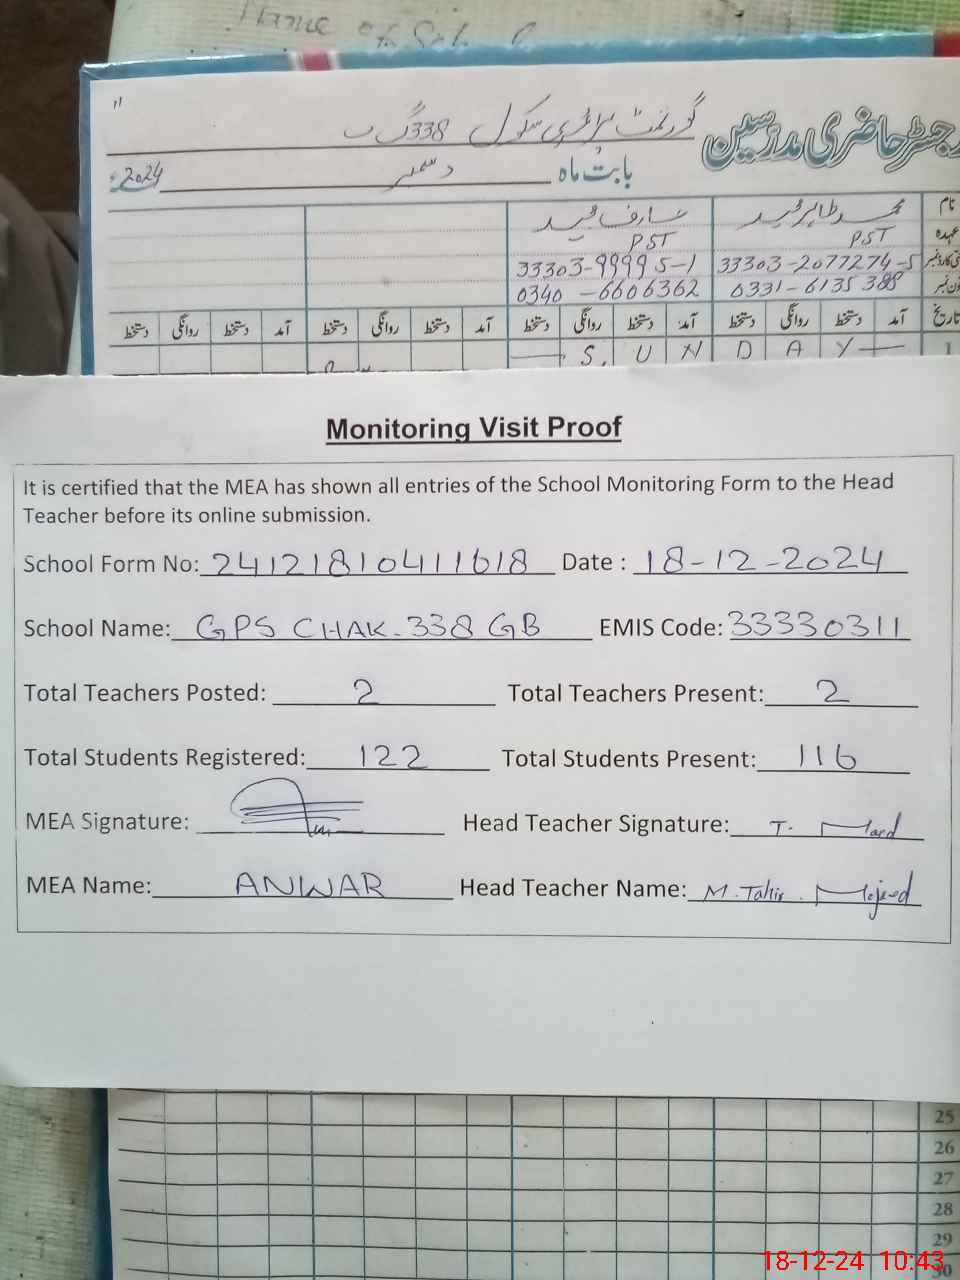 Name of Sch
"
رجسٹر حاضری مدرسین گورنمنٹ پرائمری سکول 338 گ ب
بابت ماہ دسمبر 2024ء
نام محمد طاہر مجید عارف مجید
عہدہ PST PST
33303-2077274-5 33303-99995-1
فون نمبر 0331-6135388 0340-6606362
تاریخ آمد دستخط روانگی دستخط آمد دستخط روانگی دستخط آمد دستخط روانگی دستخط آمد دستخط روانگی دستخط
1 S U N D A Y
Monitoring Visit Proof
It is certified that the MEA has shown all entries of the School Monitoring Form to the Head
Teacher before its online submission.
School Form No: 24121810411618 Date : 18-12-2024
School Name: GPS CHAK-338 GB EMIS Code: 33330311
Total Teachers Posted: 2 Total Teachers Present: 2
Total Students Registered: 122 Total Students Present: 116
MEA Signature: Head Teacher Signature: T.
MEA Name: ANWAR Head Teacher Name: M. Tahir. Majeed
25
26
27
28
29
30
18-12-24 10:43